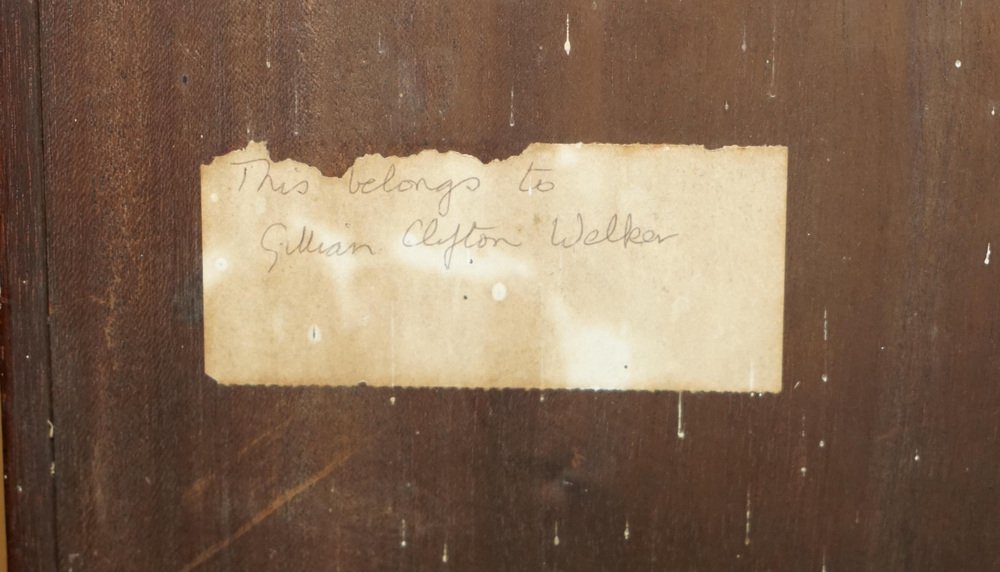 This belongs to
Gillian Clifton Walker